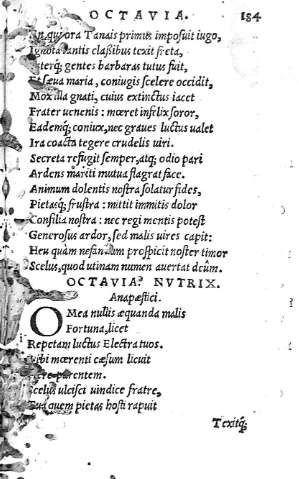 OCTAVIA. 184
ora Tanais primus imposuit iugo,
Ignota tantis claſsibus texit freta,
Interq; gentes barbaras tutus fuit,
Et ſæua maria, coniugis ſcelere occidit,
Mox illa gnati, cuius extinctus iacet
Frater uenenis: mœret infelix ſoror,
Eademq; coniux, nec graues luctus ualet
Ira coacta tegere crudelis uiri.
Secreta refugit ſemper, atq; odio pari
Ardens mariti mutua flagrat face.
Animum dolentis noſtra ſolatur fides,
Pietasq; fruſtra: mittit immitis dolor
Conſilia noſtra: nec regi mentis poteſt
Generoſus ardor, ſed malis uires capit:
Heu quàm nefandum proſpicit noſter timor
Scelus, quod utinam numen auertat deûm.
OCTAVIA? NVTRIX.
Anapæſtici.
O Mea nullis æquanda malis
Fortuna, licet
Repetam luctus Electra tuos.
Tibi mœrenti cæſum licuit
Flere parentem.
Scelus ulciſci uindice fratre,
Tua quem pietas hoſti rapuit
Texitq́;